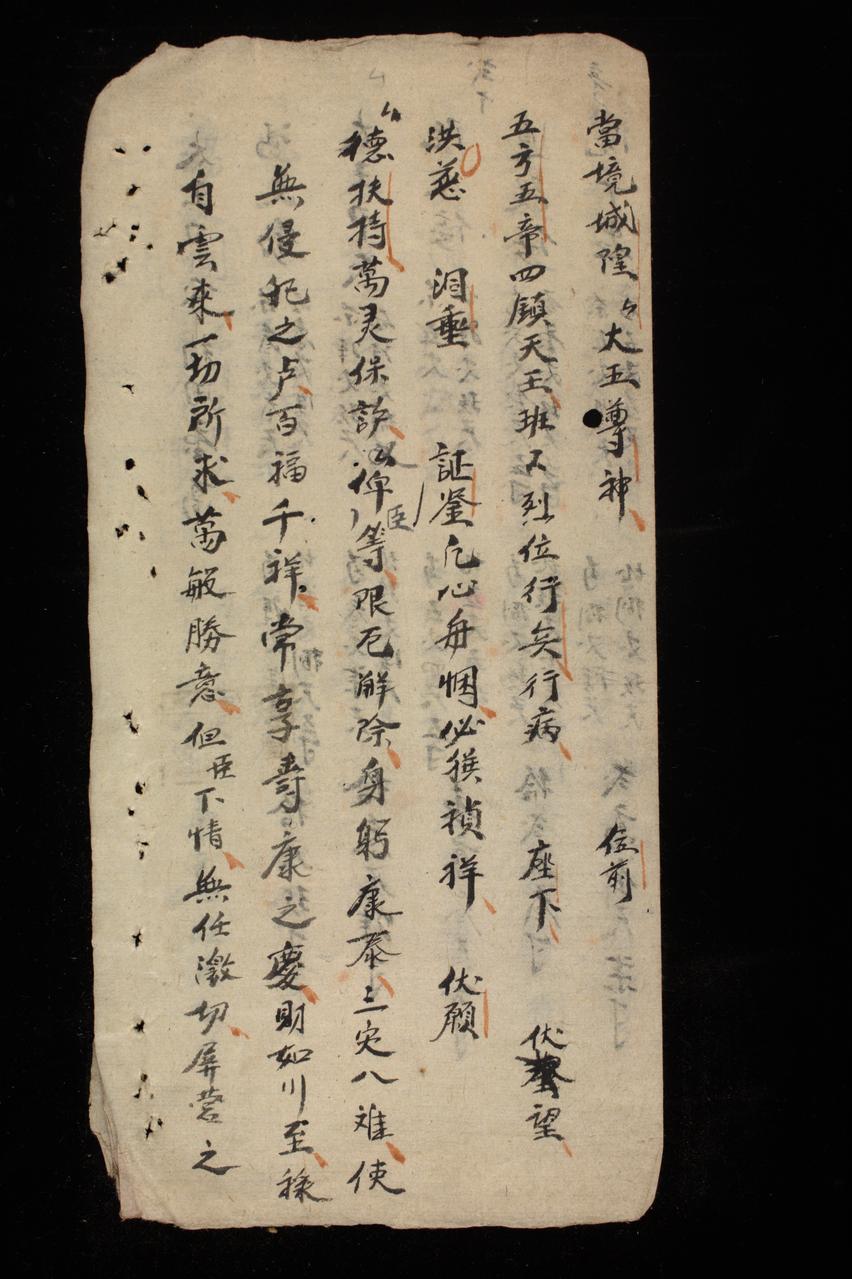 當境城隍々大王尊神 位前
五方五帝四鎮天王班又烈位行災行病 座下 伏望
洪慈 洞垂 証鉴凡心再悃必獲禎祥 伏願
德扶持萬灵保護俾臣等限厄解除身躬康泰三灾八难使
無侵犯之卢百福千祥常享壽康之慶財如川至祿
自雲来一切所求萬般勝意但臣下情無任激切屏营之